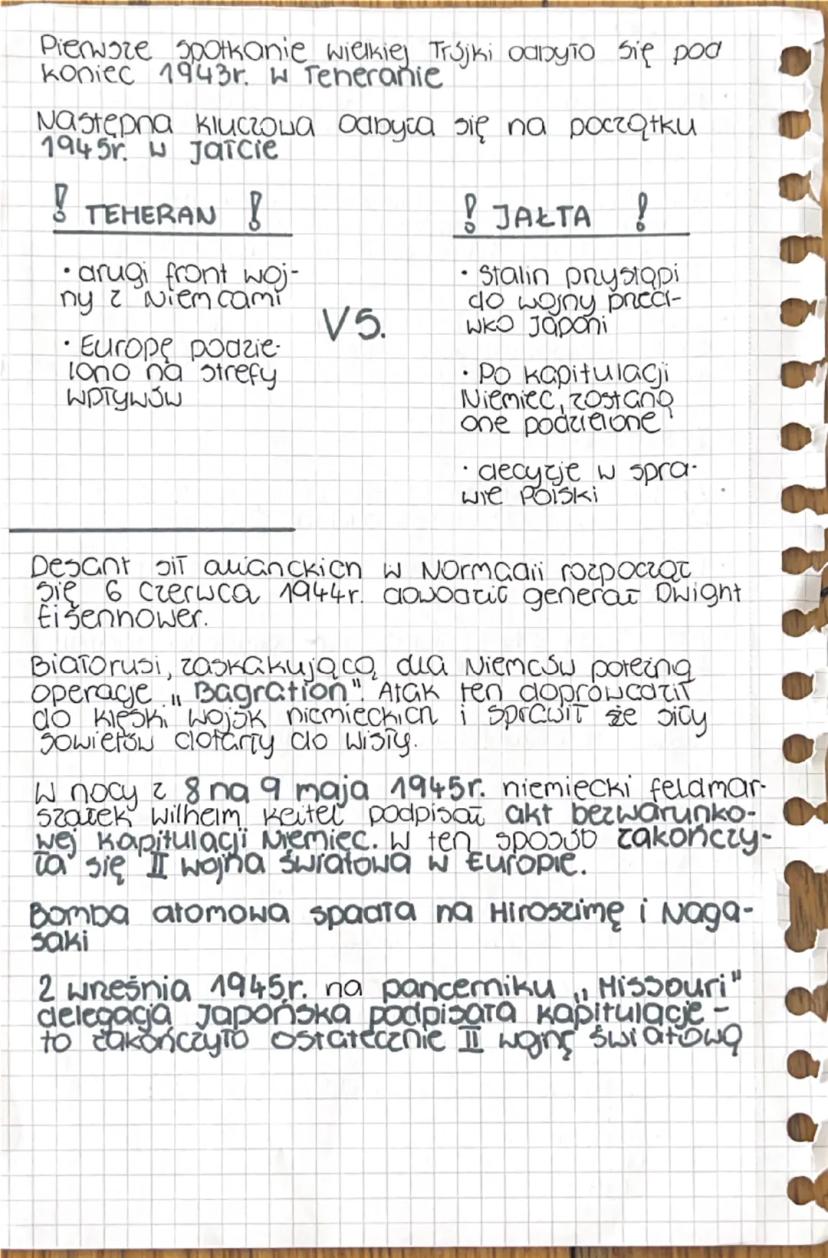 Pierwsze spotkanie wielkiej Trójki odbyło się pod
koniec 1943r. w Teheranie
Następna kluczowa odbyła się na początku
1945r. w Jałcie
! TEHERAN !
• drugi front woj-
ny z Niemcami
• Europę podzie-
lono na strefy
wpływów
VS.
! JAŁTA !
• Stalin przystąpi
do wojny przeci-
wko Japoni
• Po kapitulacji
Niemiec, zostaną
one podzielone
• decyzje w spra-
wie Polski
Desant sił alianckich w Normadii rozpoczął
się 6 czerwca 1944r. dowodził generał Dwight
Eisennower.
Białorusi, zaskakującą dla Niemców potężną
operacje „Bagration". Atak ten doprowadził
do klęski wojsk niemieckich i sprawił że siły
sowietów dotarły do Wisły.
W nocy z 8 na 9 maja 1945r. niemiecki feldmar-
szałek Wilhelm Keitel podpisał akt bezwarunko-
wej kapitulacji Niemiec. W ten sposób zakończy-
ła się II wojna światowa w Europie.
Bomba atomowa spadła na Hiroszimę i Naga-
saki
2 września 1945r. na pancerniku „Missouri"
delegacja Japońska podpisała kapitulacje -
to zakończyło ostatecznie II wojnę światową